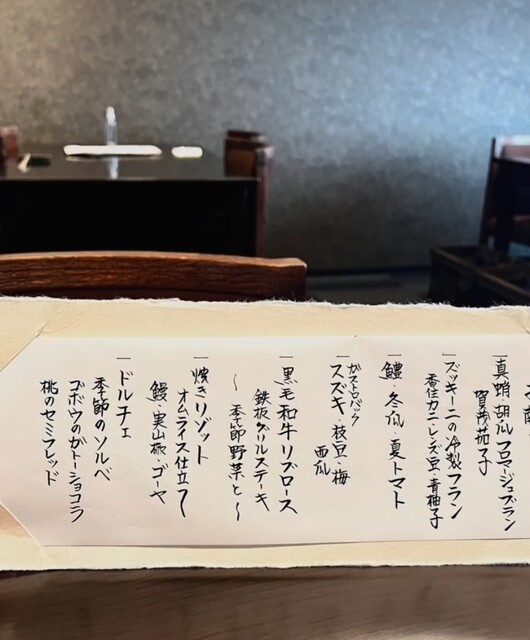 一 真蛸・胡瓜 フロマージュブラン
賀茂茄子
一 ズッキーニの冷製フラン
香住カニ・レンズ豆・青柚子
一 鱧・冬瓜・夏トマト
ガストロバック
一 スズキ・枝豆・梅
西瓜
一 黒毛和牛リブロース
鉄板グリルステーキ
〜季節野菜と〜
一 焼きリゾット
オムライス仕立て〜
鰻・実山椒・ゴーヤ
一 ドルチェ
季節のソルベ
ゴボウのガトーショコラ
桃のセミフレッド